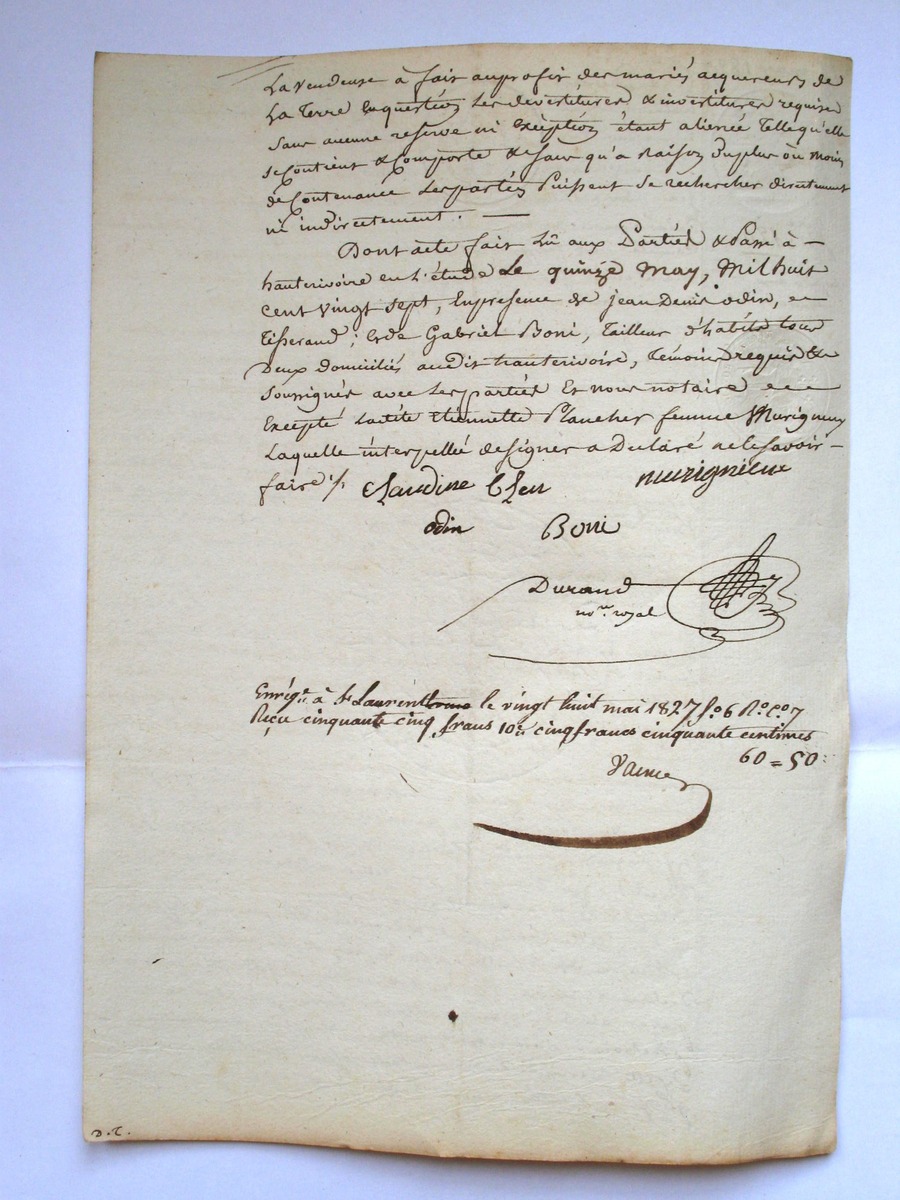 La Vendeuse à fait auprofit des mariés acquereurs de
La Terre enquestion Les devestitures & investitures requises
Sans aucune reserve ni Exception étant alienée Telle qu'elle
se Contient & Comporte & sans qu'a Raison Duplus ou Moins
de Contenance Les parties Puissent se rechercher directement
ni indirectement. —
Dont acte fait Lû aux Parties & Passé à —
hauterivoire en L'étude Le quinze May, Mil huit
cent vingt sept, En presence de jean Denis odin,
Tisserand; & de Gabriel Boni, Tailleur d'habits tous
Deux domiciliés audit hauterivoire, Témoins requis &
Soussignés avec Les parties Et nous notaire
Excepté Ladite Etiennette Plancher femme Murigneux
Laquelle interpellée de signer a Déclaré ne le savoir —
faire ./.
Claudine murigneux
odin Boni
Durand
no.re royal
Enrég.é à St Laurent le vingt huit mai 1827 f.o 6 R.o C.o 7
Reçu cinquante cinq francs 10.e cinq francs cinquante centimes
60 = 50
D.T.